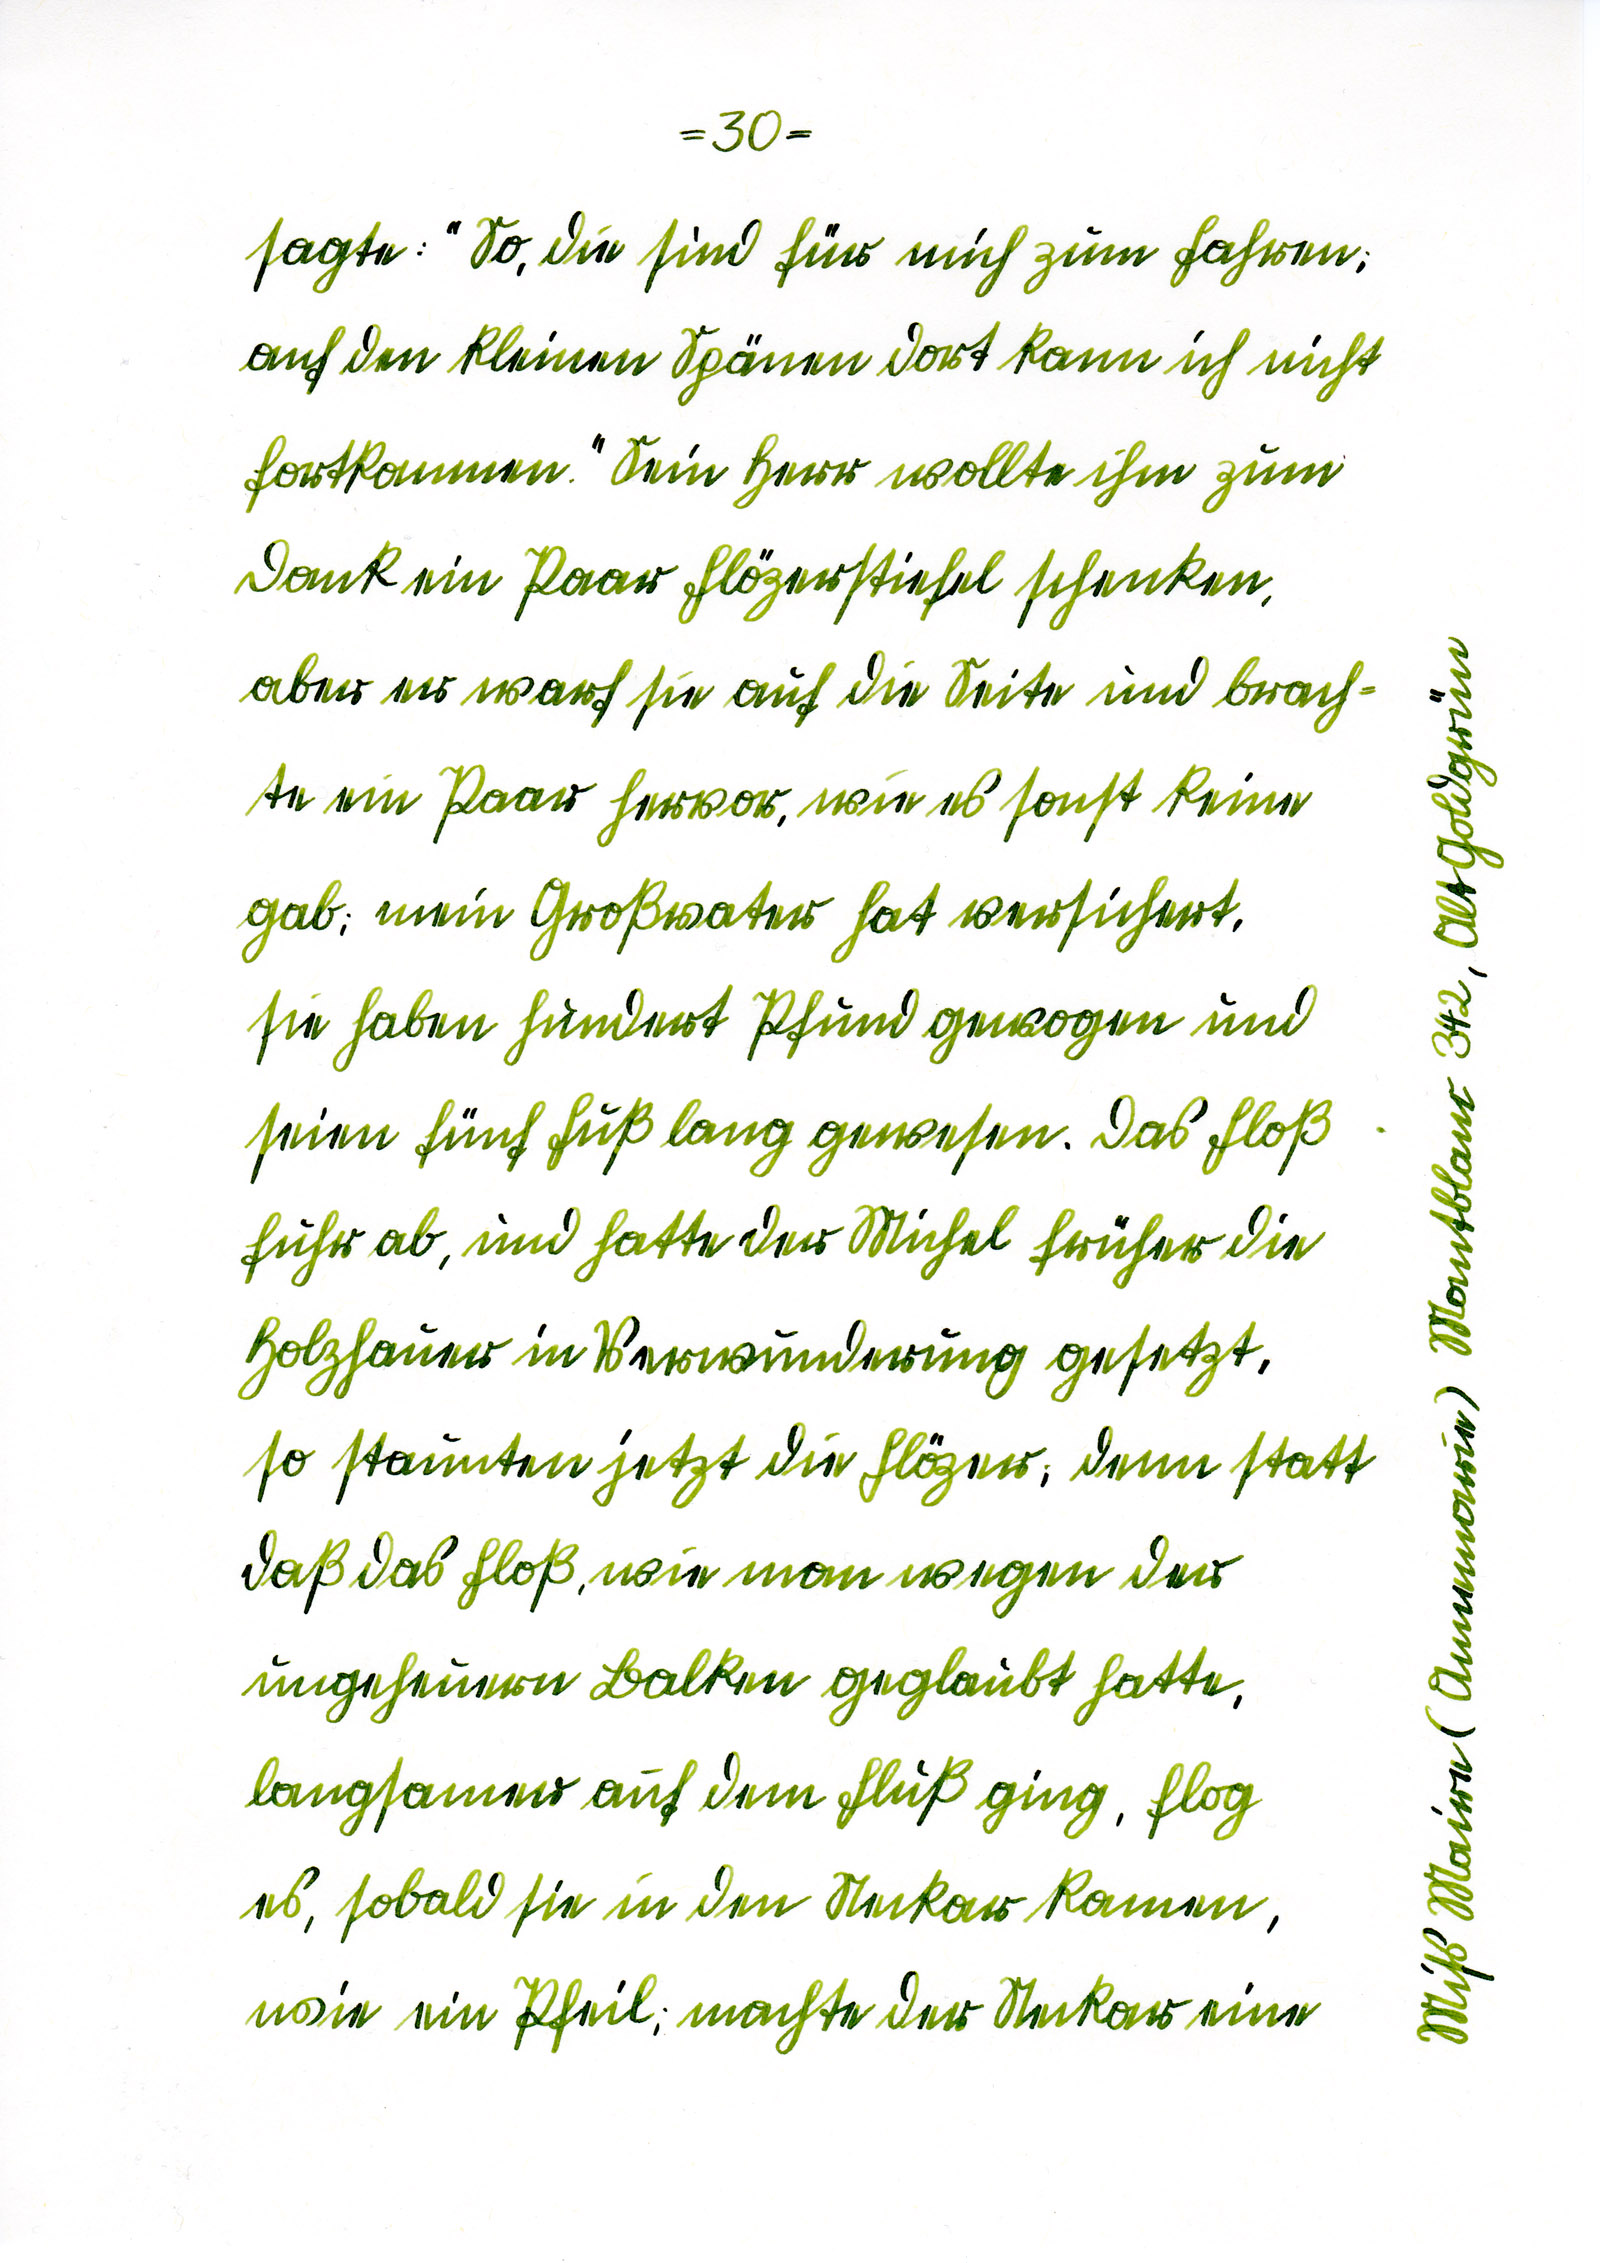 =30=
sagte: "So, die sind für mich zum fahren;
auf den kleinen Spänen dort kann ich nicht
fortkommen." Sein Herr wollte ihm zum
Dank ein Paar Flözerstiefel schenken,
aber er warf sie auf die Seite und brach=
te ein Paar hervor, wie es sonst keine
gab; mein Großvater hat versichert,
sie haben hundert Pfund gewogen und
seien fünf Fuß lang gewesen. Das Floß
fuhr ab, und hatte der Michel früher die
Holzhauer in Verwunderung gesetzt,
so staunten jetzt die Flözer; denn statt
daß das Floß, wie man wegen der
ungeheuern Balken geglaubt hatte,
langsamer auf dem Fluß ging, flog
es, sobald sie in den Neckar kamen,
wie ein Pfeil; machte der Neckar eine
Miß Mairn (Annmarie) Montblanc 342, Alt Goldgrün